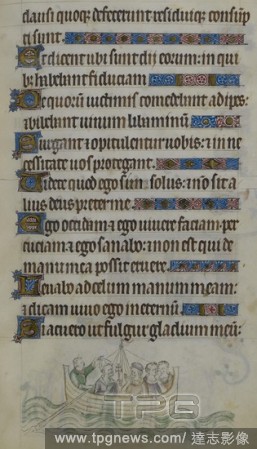 clausi quoq; defecerunt residuiq; consūp
ti sunt.
Et dicent ubi sunt dij eorum: in qui
b; habebant fiduciam
De quorū victimis comedebant adipes:
⁊ bibebant vinum libaminū
Surgant ⁊ opitulentur vobis: ⁊ in ne
cessitate vos protegant.
Videte quod ego sum solus: ⁊ nō sit a
lius deus preter me.
Ego occidam ⁊ ego vivere faciam: per
cuciam ⁊ ego sanabo: ⁊ non est qui de
manu mea possit eruere.
Levabo ad celum manum meam:
⁊ dicam vivo ego in eternū.
Si acuero ut fulgur gladium meū:
TPG
www.tpgnews.com/ 達志影像